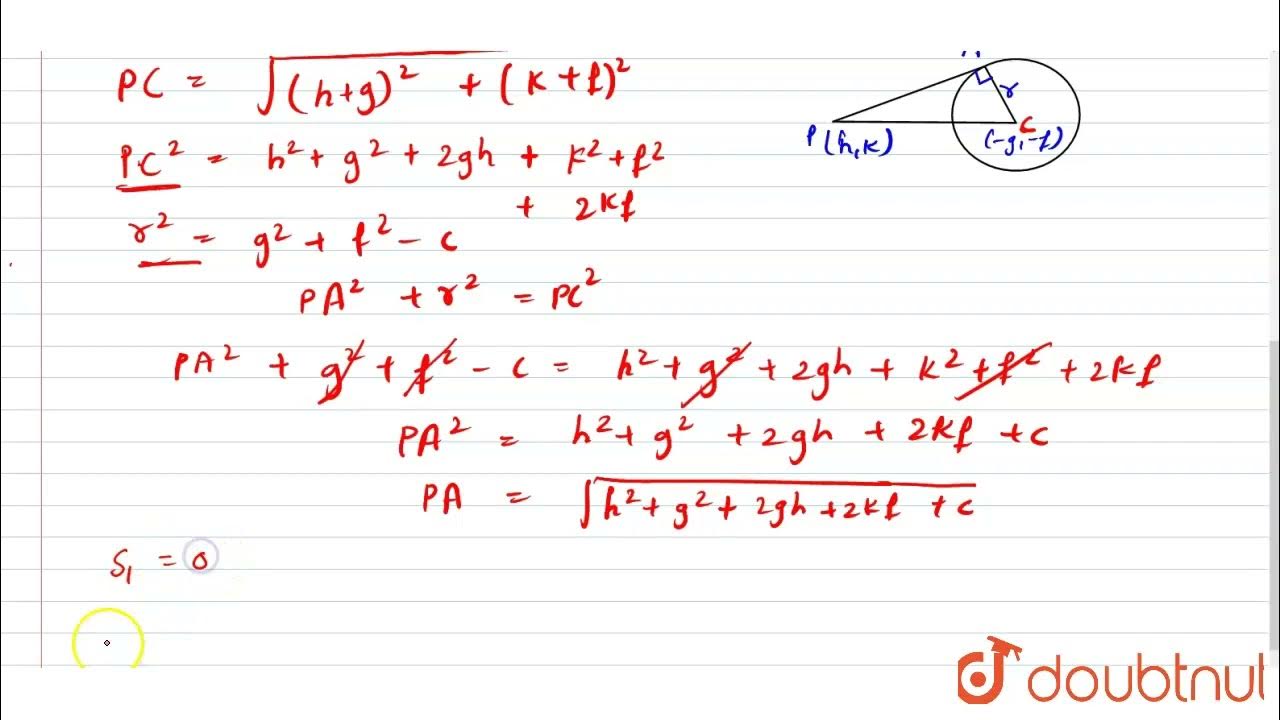 PC = √(h+g)² + (k+f)²
PC² = h² + g² + 2gh + k² + f²
+ 2kf
r² = g² + f² - c
PA² + r² = PC²
PA² + g² + f² - c = h² + g² + 2gh + k² + f² + 2kf
PA² = h² + g² + 2gh + 2kf + c
PA = √h² + g² + 2gh + 2kf + c
S₁ = 0
r
P(h,k)
C
(-g,-f)
doubtnut